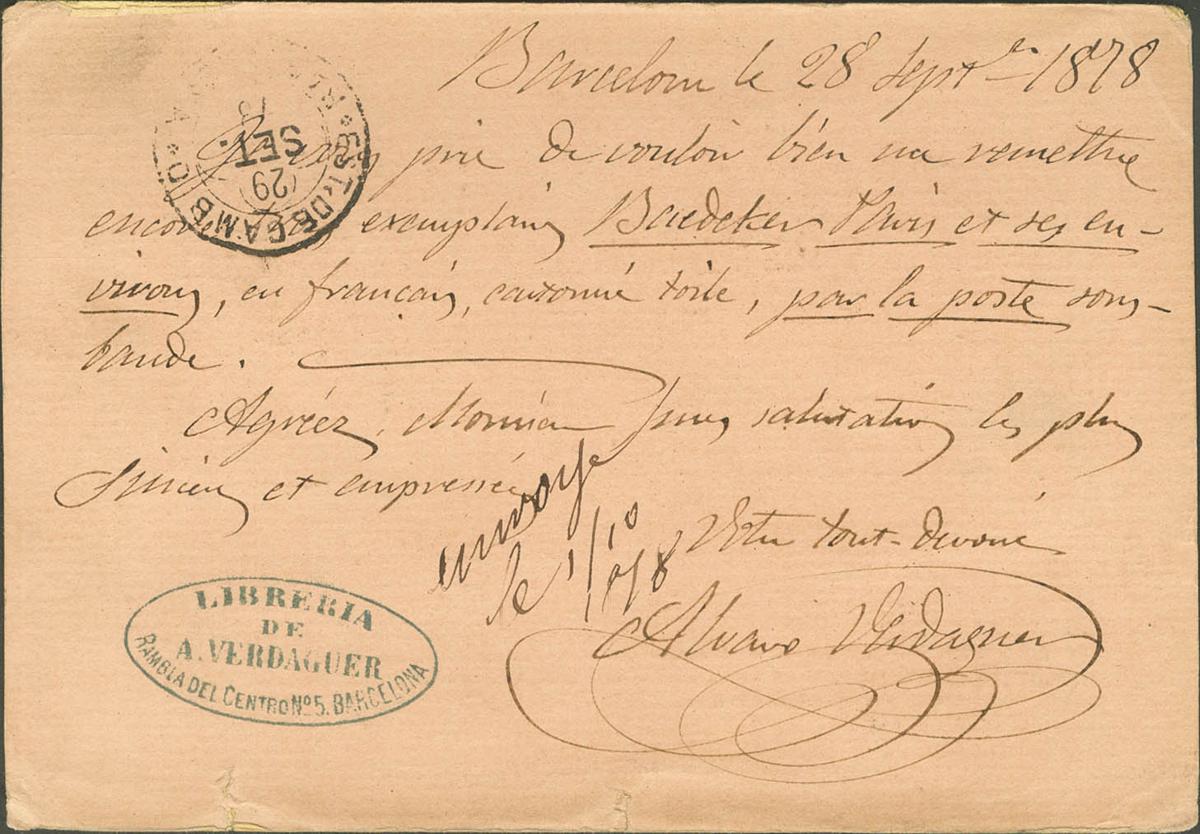 Barcelone le 28 Septbre 1878
Je vous prie de vouloir bien me remettre
encore exemplaires Baedeker Paris et ses en-
virons, en français, cartonné toile, par la poste sous-
bande.
Agréez, Monsieur mes salutations les plus
sincères et empressées
Votre tout-dévoué
Alvaro Verdaguer
envoye
le 1/10
1878
LIBRERIA
DE
A. VERDAGUER
RAMBLA DEL CENTRO Nº 5. BARCELONA
EST. DE CAMB
29
SET.
78